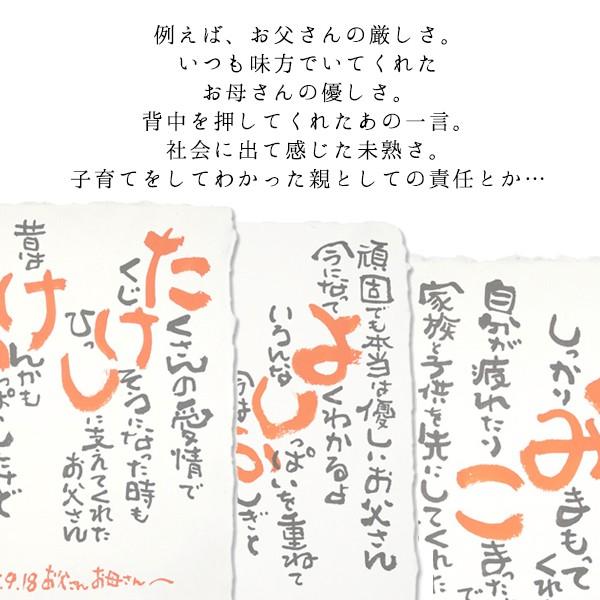 例えば、お父さんの厳しさ。
いつも味方でいてくれた
お母さんの優しさ。
背中を押してくれたあの一言。
社会に出て感じた未熟さ。
子育てをしてわかった親としての責任とか…
たくさんの愛情で
くじけそうになった時も
ひっしに支えてくれた
お父さん
昔は
けんかも
っぱいしたけど
.9.18 お父さんお母さん〜
頑固でも本当は優しいお父さん
今になって
よくわかるよ
いろんな
しっぱいを重ねて
今は
しぎと
しっかり
みまもってくれ
自分が疲れたり
こまった
で
家族と子供を先にしてくれた